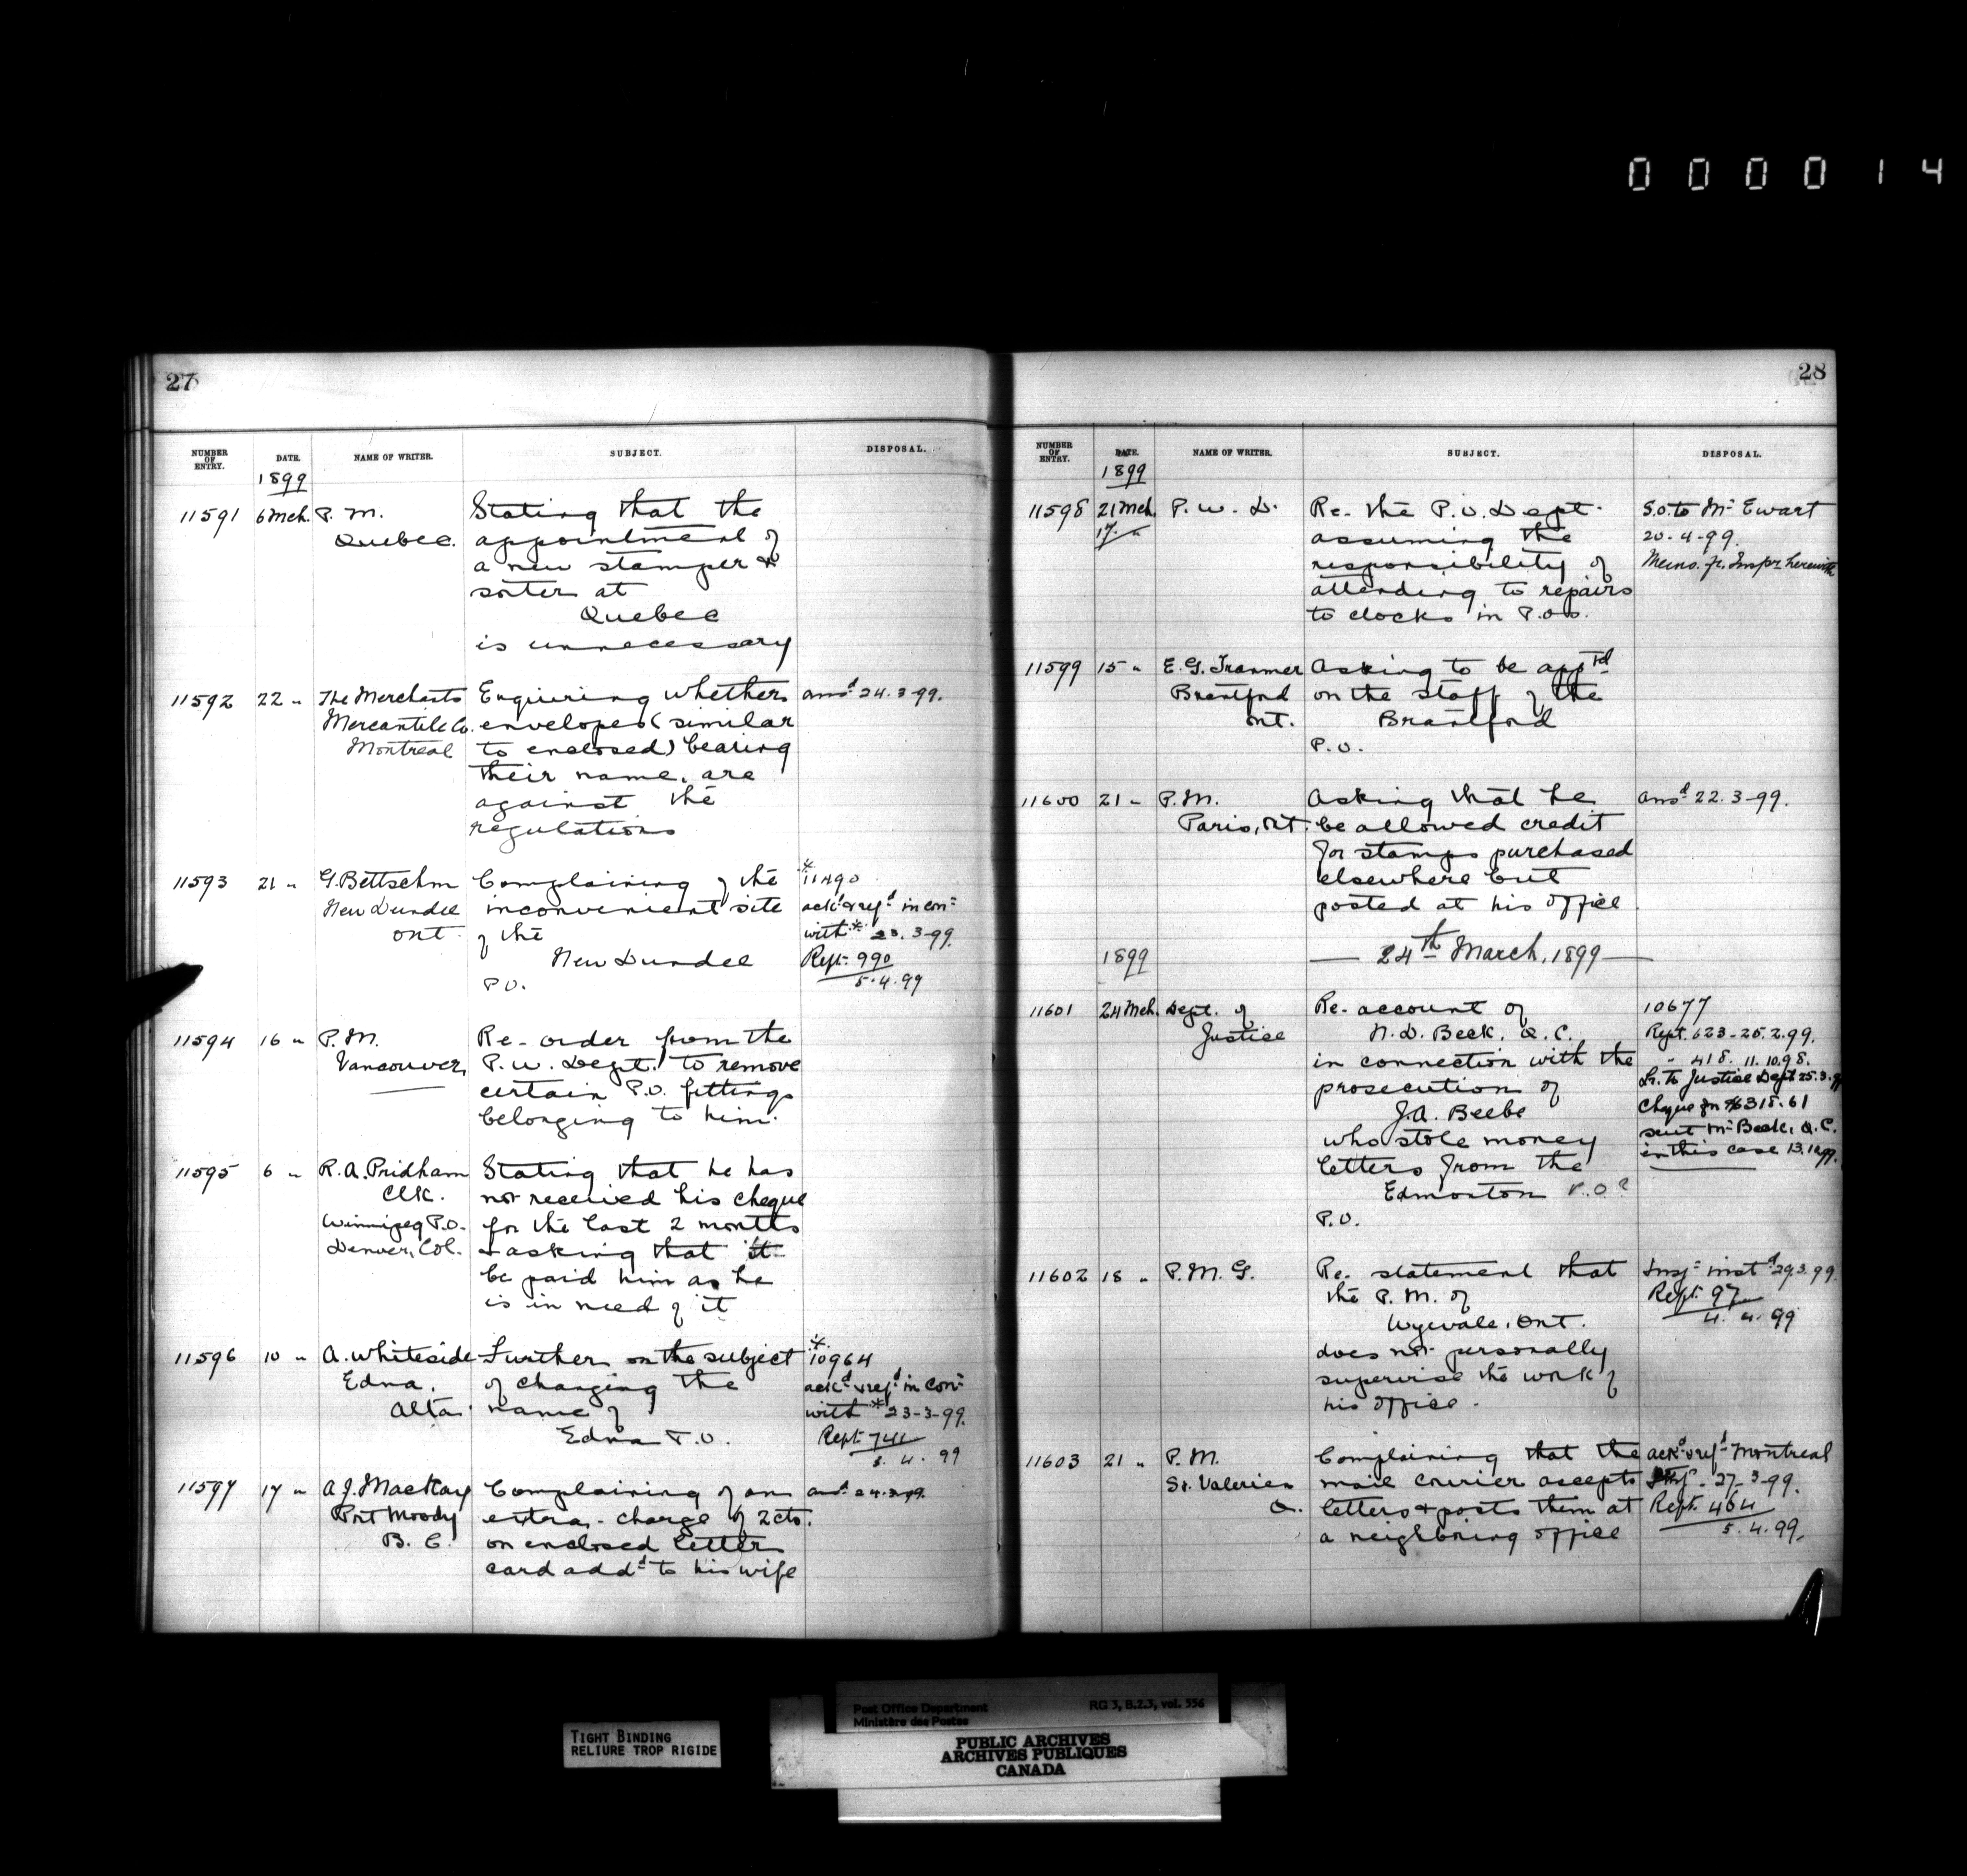 000014
27
NUMBER OF ENTRY. DATE. NAME OF WRITER. SUBJECT. DISPOSAL.
1899
11591 6 Mch. P. M. Stating that the
Quebec. appointment of
a new stamper &
sorter at
Quebec
is unnecessary
11592 22 " The Merchants Enquiring whether ansd 24.3-99.
Mercantile Co. envelopes (similar
Montreal to enclosed) bearing
their name, are
against the
regulations
11593 21 " G. Bettschm Complaining of the * 11490
New Dundee inconvenient site ackd & refd in con-
Ont. of the with * 23.3-99.
New Dundee Rept. 990
P.O. 5.4.99
11594 16 " P.M. Re- order from the
Vancouver, P.W. Dept. to remove
certain P.O. fittings
belonging to him.
11595 6 " R.A. Pridham Stating that he has
Clk. not received his cheque
Winnipeg P.O. for the last 2 months
Denver, Col. & asking that it
be paid him as he
is in need of it
11596 10 " A. Whiteside Further on the subject * 10964
Edna, of changing the ackd & refd in con-
Alta. name of with * 23-3-99.
Edna P.O. Rept 741
5. 4. 99
11597 17 " A.J. MacKay Complaining of an ansd 24.3.99.
Port Moody extra - charge of 2cts.
B. C. on enclosed letter
card addd to his wife
28
NUMBER OF ENTRY. DATE. NAME OF WRITER. SUBJECT. DISPOSAL.
1899
11598 21 Mch. P. W. D. Re- the P.O. Dept. S.O. to Mr Ewart
17 " assuming the 20-4-99.
responsibility of Memo. fr. Inspr herewith
attending to repairs
to clocks in P.Os.
11599 15 " E.G. Tranmer Asking to be apptd
Brantford on the staff of the
Ont. Brantford
P.O.
11600 21 " P.M. Asking that he ansd 22.3-99.
Paris, Ont. be allowed credit
for stamps purchased
elsewhere but
posted at his office.
1899 — 24th March, 1899 —
11601 24 Mch. Dept. of Re- account of 10677
Justice N.D. Beck, Q.C. Rept. 623-25.2.99.
in connection with the " 418. 11.10.98.
prosecution of Lr. to Justice Dept 25.3.99
J.A. Beebe Cheque for $318.61
who stole money sent Mr Beck, Q.C.
letters from the in this case
Edmonton P.O?
P.O.
11602 18 " P.M.G. Re- statement that Insp- instd 29.3.99.
the P.M. of Rept. 97
Wyevale, Ont. 4. 4. 99
does not personally
supervise the work of
his office.
11603 21 " P.M. Complaining that the ackd & refd Montreal
St. Valerien mail courier accepts 27-3-99.
Q. letters & posts them at Rept. 464
a neighboring office 5.4.99.
TIGHT BINDING
RELIURE TROP RIGIDE
Post Office Department RG 3, B.2.3, vol. 556
Ministère des Postes
PUBLIC ARCHIVES
ARCHIVES PUBLIQUES
CANADA